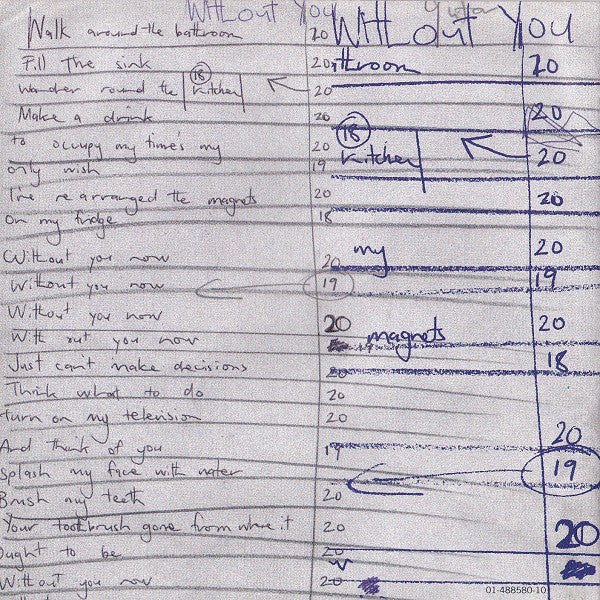 Without You
Without You
Walk around the bathroom 20
throom 20
Fill The sink 20
wander round the kitchen 18 20
Make a drink 20
20
18
kitchen 20
to occupy my time's my 20
only wish 19
I've re arranged the magnets 20
20
on my fridge 18
my 20
Without you now 20
Without you now 19
19
Without you now 20
magnets 20
With out you now
18
Just can't make decisions 20
Think what to do 20
turn on my television 20
20
And think of you 19
19
Splash my face with water
Brush my teeth 20
Your toothbrush gone from where it 20
20
ought to be 20
Without you now 20
01-488580-10